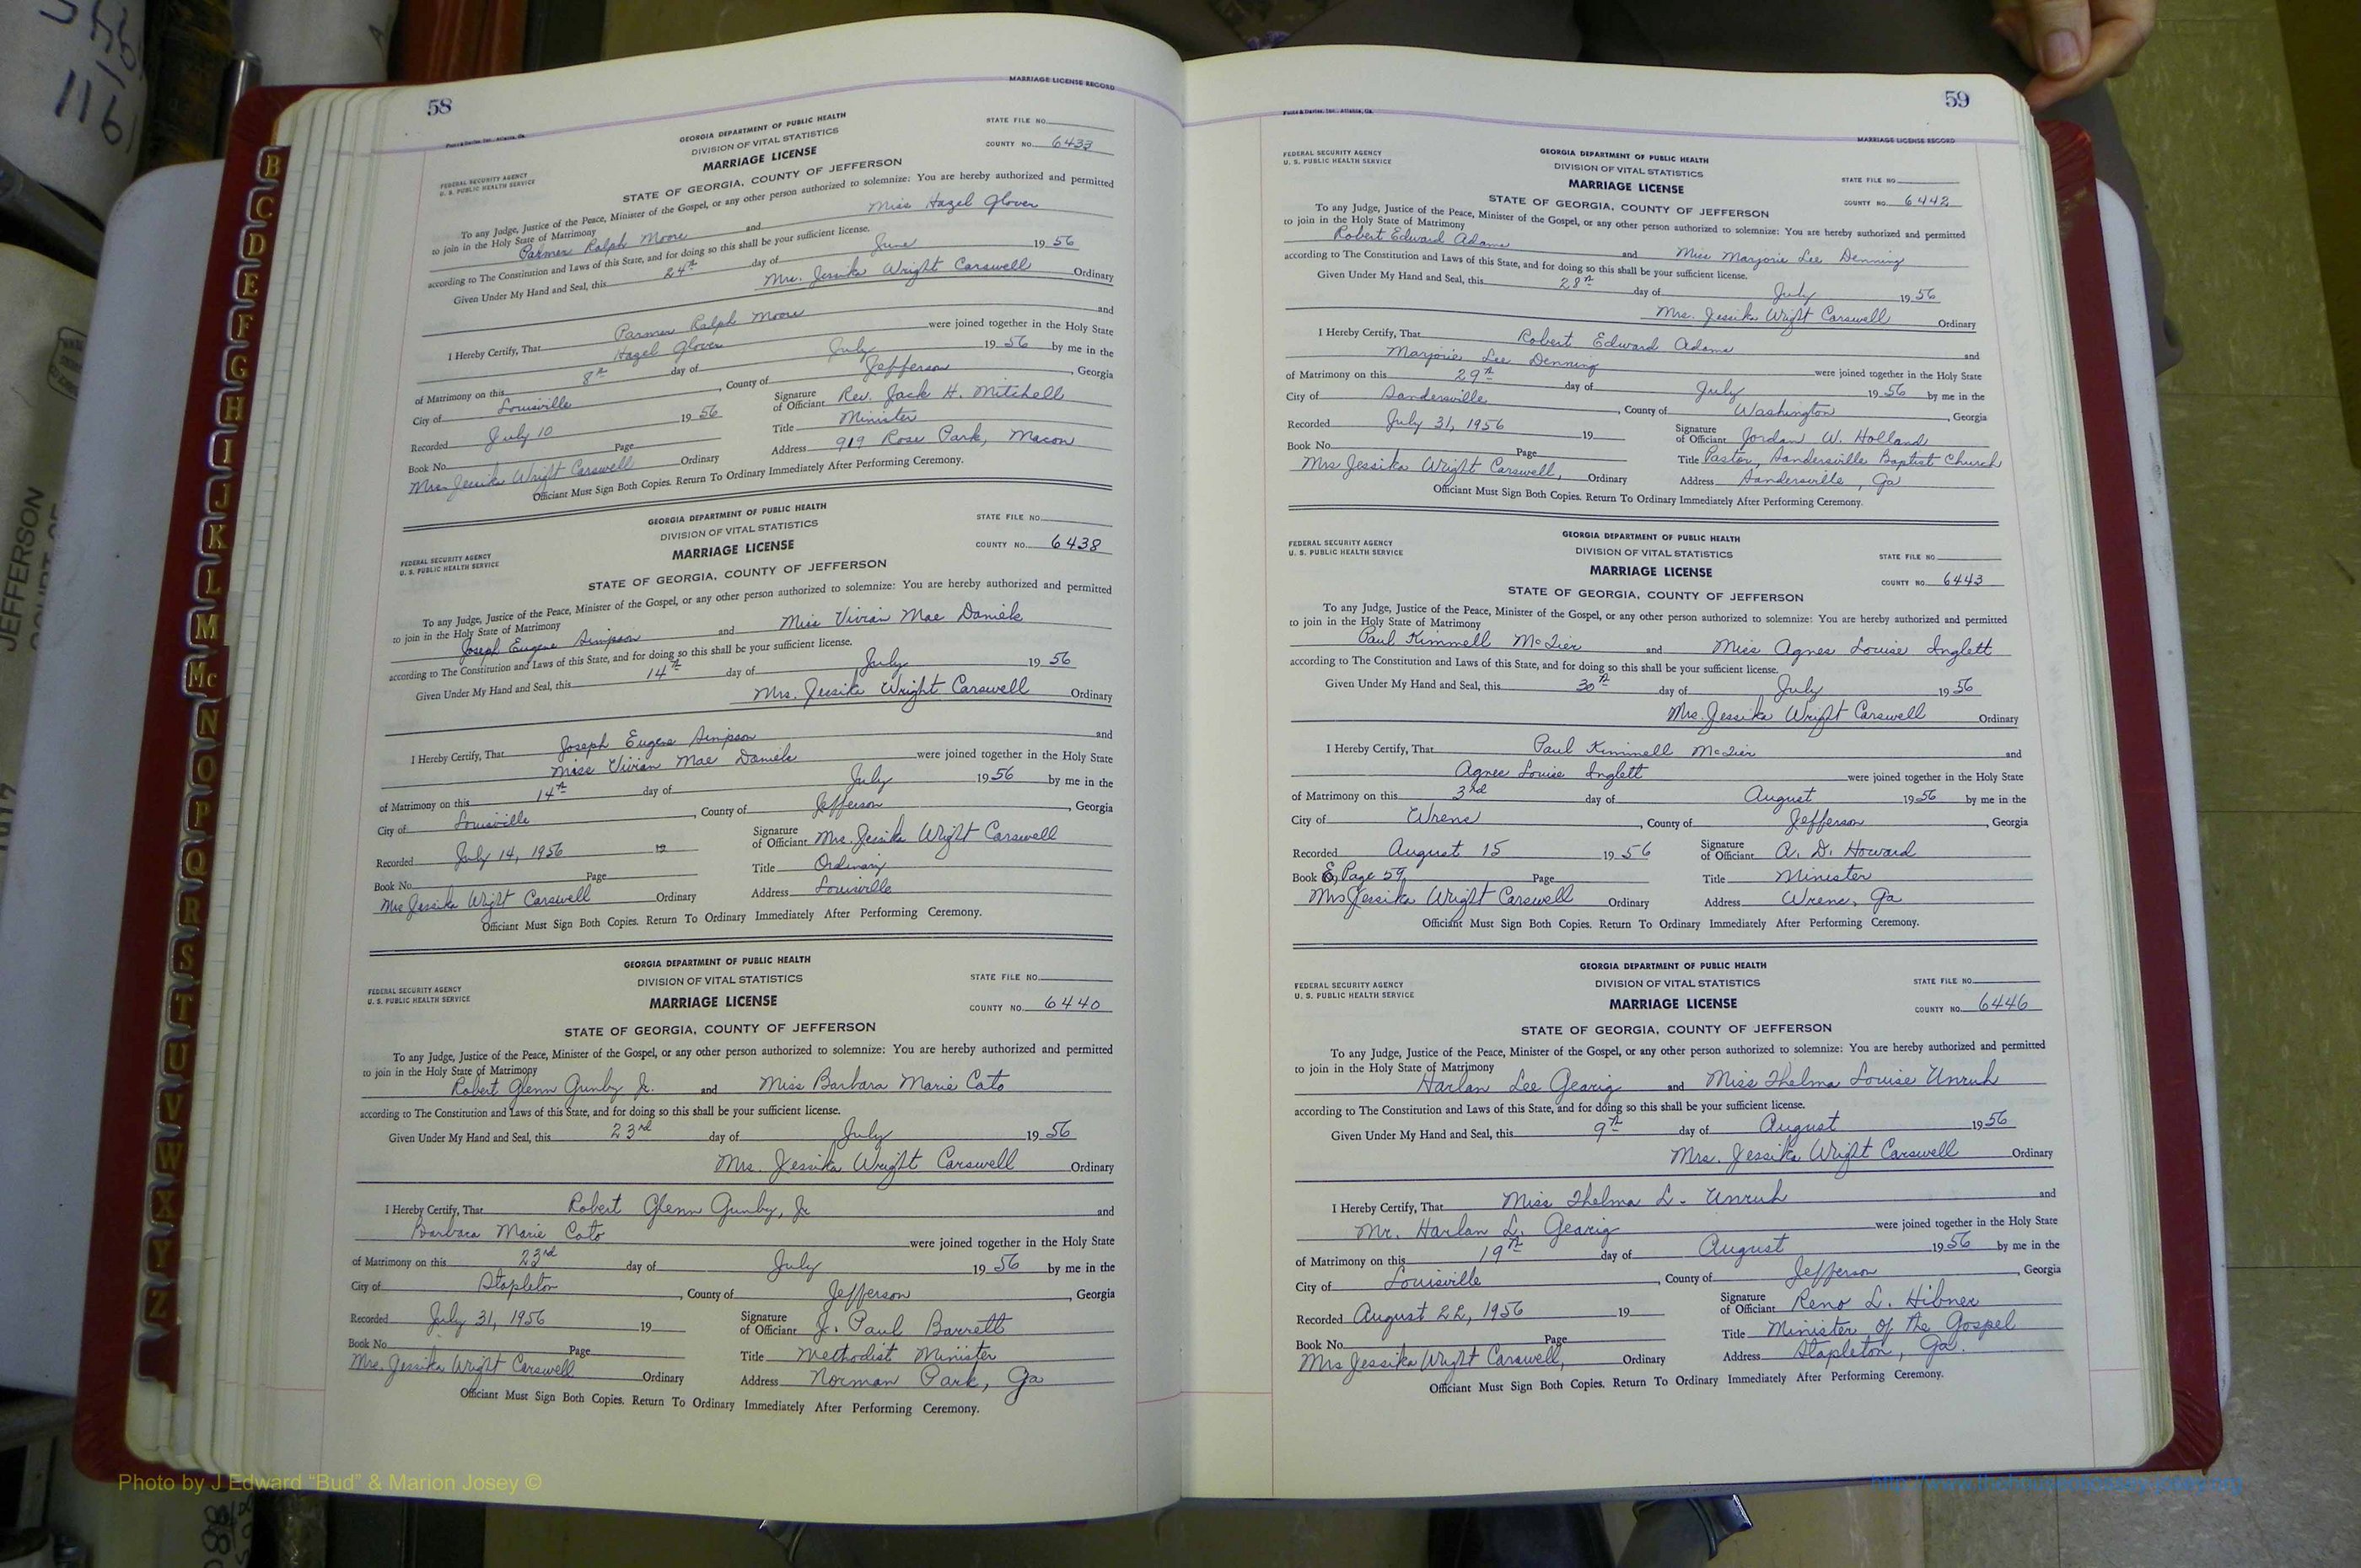 58
MARRIAGE LICENSE RECORD
GEORGIA DEPARTMENT OF PUBLIC HEALTH
DIVISION OF VITAL STATISTICS
MARRIAGE LICENSE
STATE OF GEORGIA, COUNTY OF JEFFERSON
FEDERAL SECURITY AGENCY
U. S. PUBLIC HEALTH SERVICE
STATE FILE NO.
COUNTY NO. 6433
To any Judge, Justice of the Peace, Minister of the Gospel, or any other person authorized to solemnize: You are hereby authorized and permitted
to join in the Holy State of Matrimony
Parmer Ralph Moore and Miss Hazel Glover
according to The Constitution and Laws of this State, and for doing so this shall be your sufficient license.
Given Under My Hand and Seal, this 24th day of June 19 56
Mrs. Jessika Wright Carswell Ordinary
I Hereby Certify, That Parmer Ralph Moore and
Hazel Glover were joined together in the Holy State
of Matrimony on this 8th day of July 19 56 by me in the
City of Louisville, County of Jefferson, Georgia
Recorded July 10 19 56
Signature of Officiant Rev. Jack H. Mitchell
Book No. Page
Title Minister
Mrs. Jessika Wright Carswell Ordinary
Address 919 Rose Park, Macon
Officiant Must Sign Both Copies. Return To Ordinary Immediately After Performing Ceremony.
GEORGIA DEPARTMENT OF PUBLIC HEALTH
DIVISION OF VITAL STATISTICS
MARRIAGE LICENSE
STATE OF GEORGIA, COUNTY OF JEFFERSON
FEDERAL SECURITY AGENCY
U. S. PUBLIC HEALTH SERVICE
STATE FILE NO.
COUNTY NO. 6438
To any Judge, Justice of the Peace, Minister of the Gospel, or any other person authorized to solemnize: You are hereby authorized and permitted
to join in the Holy State of Matrimony
Joseph Eugene Simpson and Miss Vivian Mae Daniels
according to The Constitution and Laws of this State, and for doing so this shall be your sufficient license.
Given Under My Hand and Seal, this 14th day of July 19 56
Mrs. Jessika Wright Carswell Ordinary
I Hereby Certify, That Joseph Eugene Simpson and
Miss Vivian Mae Daniels were joined together in the Holy State
of Matrimony on this 14th day of July 19 56 by me in the
City of Louisville, County of Jefferson, Georgia
Recorded July 14, 1956 19
Signature of Officiant Mrs. Jessika Wright Carswell
Book No. Page
Title Ordinary
Mrs Jessika Wright Carswell Ordinary
Address Louisville
Officiant Must Sign Both Copies. Return To Ordinary Immediately After Performing Ceremony.
GEORGIA DEPARTMENT OF PUBLIC HEALTH
DIVISION OF VITAL STATISTICS
MARRIAGE LICENSE
STATE OF GEORGIA, COUNTY OF JEFFERSON
FEDERAL SECURITY AGENCY
U. S. PUBLIC HEALTH SERVICE
STATE FILE NO.
COUNTY NO. 6440
To any Judge, Justice of the Peace, Minister of the Gospel, or any other person authorized to solemnize: You are hereby authorized and permitted
to join in the Holy State of Matrimony
Robert Glenn Gunby Jr. and Miss Barbara Marie Cato
according to The Constitution and Laws of this State, and for doing so this shall be your sufficient license.
Given Under My Hand and Seal, this 23rd day of July 19 56
Mrs. Jessika Wright Carswell Ordinary
I Hereby Certify, That Robert Glenn Gunby, Jr and
Barbara Marie Cato were joined together in the Holy State
of Matrimony on this 23rd day of July 19 56 by me in the
City of Stapleton, County of Jefferson, Georgia
Recorded July 31, 1956 19
Signature of Officiant J. Paul Barrett
Book No. Page
Title Methodist Minister
Mrs. Jessika Wright Carswell Ordinary
Address Norman Park, Ga
Officiant Must Sign Both Copies. Return To Ordinary Immediately After Performing Ceremony.
59
MARRIAGE LICENSE RECORD
FEDERAL SECURITY AGENCY
U. S. PUBLIC HEALTH SERVICE
GEORGIA DEPARTMENT OF PUBLIC HEALTH
DIVISION OF VITAL STATISTICS
MARRIAGE LICENSE
STATE OF GEORGIA, COUNTY OF JEFFERSON
STATE FILE NO.
COUNTY NO. 6442
To any Judge, Justice of the Peace, Minister of the Gospel, or any other person authorized to solemnize: You are hereby authorized and permitted
to join in the Holy State of Matrimony
Robert Edward Adams and Miss Marjorie Lee Denning
according to The Constitution and Laws of this State, and for doing so this shall be your sufficient license.
Given Under My Hand and Seal, this 28th day of July 19 56
Mrs. Jessika Wright Carswell Ordinary
I Hereby Certify, That Robert Edward Adams and
Marjorie Lee Denning were joined together in the Holy State
of Matrimony on this 29th day of July 19 56 by me in the
City of Sandersville, County of Washington, Georgia
Recorded July 31, 1956 19
Signature of Officiant Jordan W. Holland
Book No. Page
Title Pastor, Sandersville Baptist Church
Mrs Jessika Wright Carswell, Ordinary
Address Sandersville, Ga
Officiant Must Sign Both Copies. Return To Ordinary Immediately After Performing Ceremony.
FEDERAL SECURITY AGENCY
U. S. PUBLIC HEALTH SERVICE
GEORGIA DEPARTMENT OF PUBLIC HEALTH
DIVISION OF VITAL STATISTICS
MARRIAGE LICENSE
STATE OF GEORGIA, COUNTY OF JEFFERSON
STATE FILE NO.
COUNTY NO. 6443
To any Judge, Justice of the Peace, Minister of the Gospel, or any other person authorized to solemnize: You are hereby authorized and permitted
to join in the Holy State of Matrimony
Paul Kimmell McTier and Miss Agnes Louise Inglett
according to The Constitution and Laws of this State, and for doing so this shall be your sufficient license.
Given Under My Hand and Seal, this 30th day of July 19 56
Mrs. Jessika Wright Carswell Ordinary
I Hereby Certify, That Paul Kimmell McTier and
Agnes Louise Inglett were joined together in the Holy State
of Matrimony on this 3rd day of August 19 56 by me in the
City of Wrens, County of Jefferson, Georgia
Recorded August 15 19 56
Signature of Officiant A. D. Howard
Book E, Page 59 Page
Title Minister
Mrs Jessika Wright Carswell Ordinary
Address Wrens, Ga
Officiant Must Sign Both Copies. Return To Ordinary Immediately After Performing Ceremony.
FEDERAL SECURITY AGENCY
U. S. PUBLIC HEALTH SERVICE
GEORGIA DEPARTMENT OF PUBLIC HEALTH
DIVISION OF VITAL STATISTICS
MARRIAGE LICENSE
STATE OF GEORGIA, COUNTY OF JEFFERSON
STATE FILE NO.
COUNTY NO. 6446
To any Judge, Justice of the Peace, Minister of the Gospel, or any other person authorized to solemnize: You are hereby authorized and permitted
to join in the Holy State of Matrimony
Harlan Lee Gearig and Miss Thelma Louise Unruh
according to The Constitution and Laws of this State, and for doing so this shall be your sufficient license.
Given Under My Hand and Seal, this 9th day of August 19 56
Mrs. Jessika Wright Carswell Ordinary
I Hereby Certify, That Miss Thelma L. Unruh and
Mr. Harlan L. Gearig were joined together in the Holy State
of Matrimony on this 19th day of August 19 56 by me in the
City of Louisville, County of Jefferson, Georgia
Recorded August 22, 1956 19
Signature of Officiant Reno L. Hibner
Book No. Page
Title Minister of the Gospel
Mrs Jessika Wright Carswell, Ordinary
Address Stapleton, Ga.
Officiant Must Sign Both Copies. Return To Ordinary Immediately After Performing Ceremony.
B
C
D
E
F
G
H
I
J
K
L
M
Mc
N
O
P
Q
R
S
T
U
V
W
X
Y
Z
JEFFERSON
Photo by J Edward “Bud” & Marion Josey ©